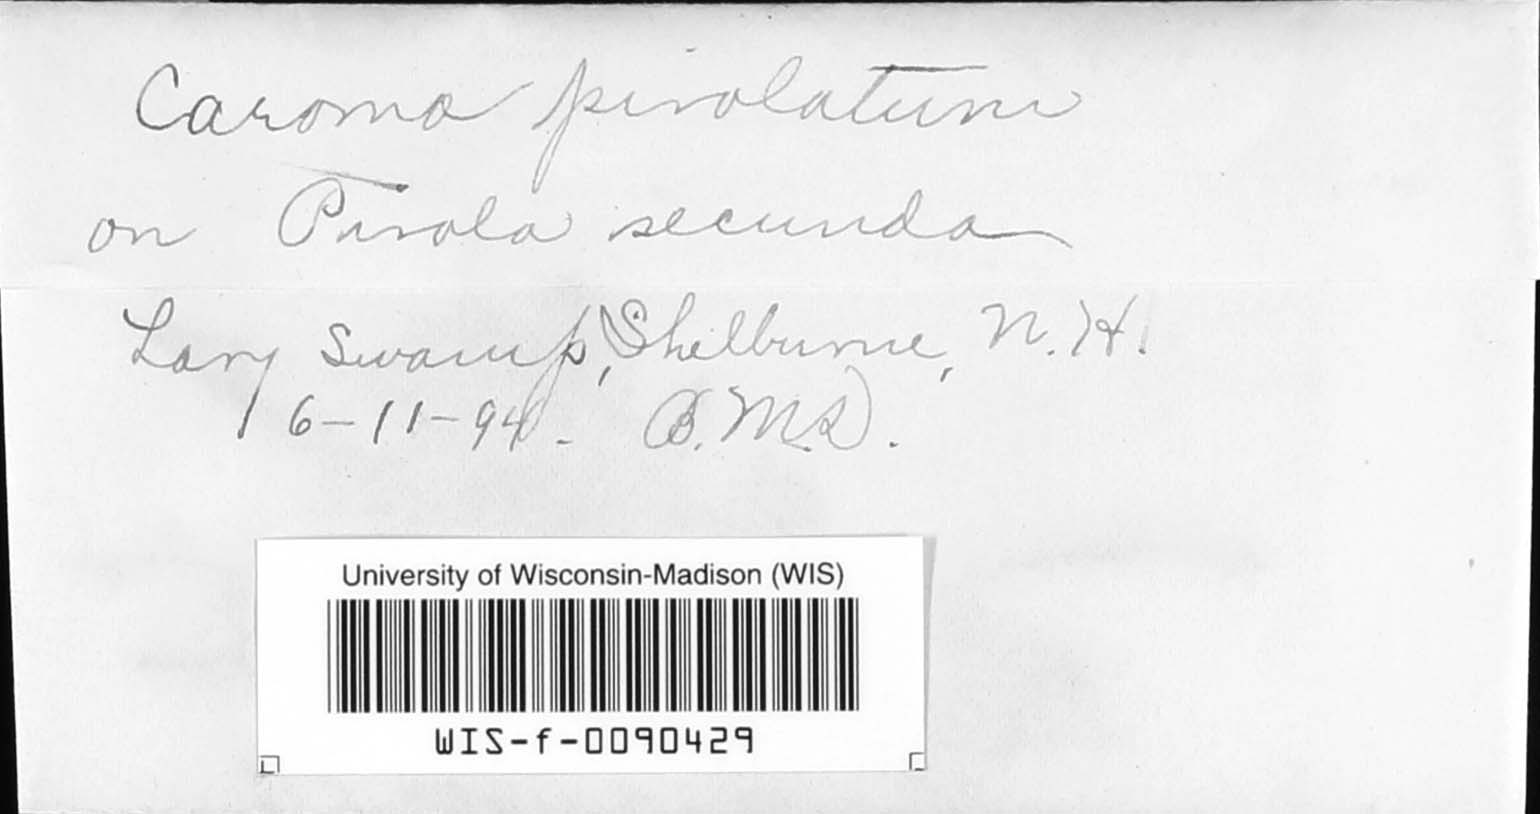 Caeoma pirolatum
on Pirola secunda
Lary Swamp, Shelburne, N.H.
6-11-94. B.M.D.
University of Wisconsin-Madison (WIS)
WIS-f-0090429